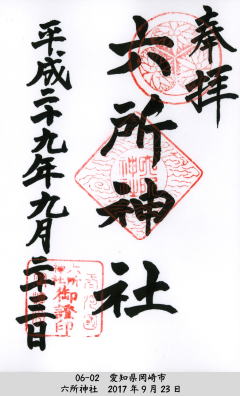 奉拝
六所神社
平成二十九年九月二十三日
六所
神社
御證印
06-02 愛知県岡崎市
六所神社 2017年9月23日